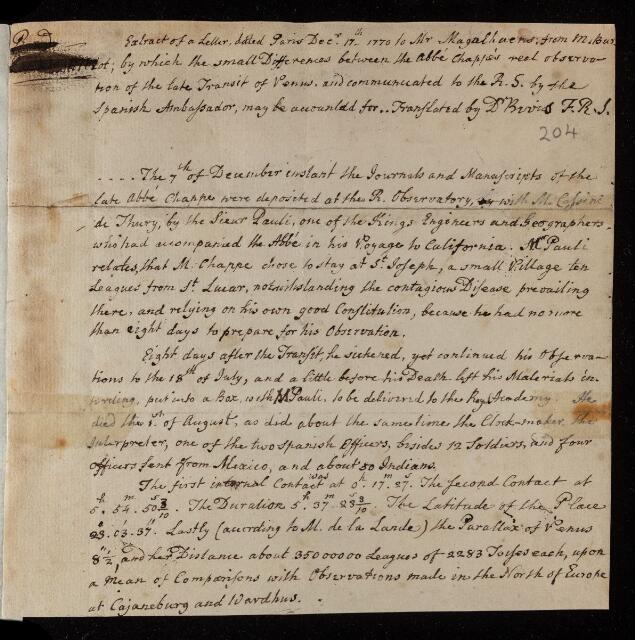 Extract of a Letter, dated Paris Decr. 17th 1770 to Mr Magalhaens, from M. Bur
; by which the small Differences between the Abbé Chappe's reel observa-
tion of the late Transit of Venus, and communicated to the R. S. by the
Spanish Ambassador, may be accounted for.. Translated by Dr Bevis F.R.S.
204
.... The 7th of December instant the Journals and Manuscripts of the
late Abbé Chappe were deposited at the R. Observatory, with M. Cassini
de Thury, by the Sieur Pauli, one of the Kings Engineers and Geographers,
who had accompanied the Abbé in his Voyage to California. Mr Pauli
relates, that M. Chappe chose to stay at St. Joseph, a small Village ten
Leagues from St. Lucar, notwithstanding the contagious Disease prevailing
there, and relying on his own good Constitution, because he had no more
than eight days to prepare for his Observation.
Eight days after the Transit, he sickened, yet continued his Observa-
tions to the 18th of July, and a little before his Death left his Materials in
writing, put into a Box, with M Pauli, to be delivered to the Academy. He
died the 1st. of August, as did about the same time the Clock-maker, the
Interpreter, one of the two Spanish Officers, besides 12 Soldiers, and four
officers sent from Mexico, and about 30 Indians.
The first internal Contact was at 0h. 17m. 27s. The Second Contact at
5h. 54m. 50s 3/10. The Duration 5h. 37m. 23s 3/10. The Latitude of the Place
23°. 03'. 37". Lastly (according to M. de la Lande) the Parallax of Venus
8" 1/2, and her Distance about 35000000 Leagues of 2283 Toises each, upon
a Mean of Comparisons with Observations made in the North of Europe
at Cajaneburg and Wardhus.